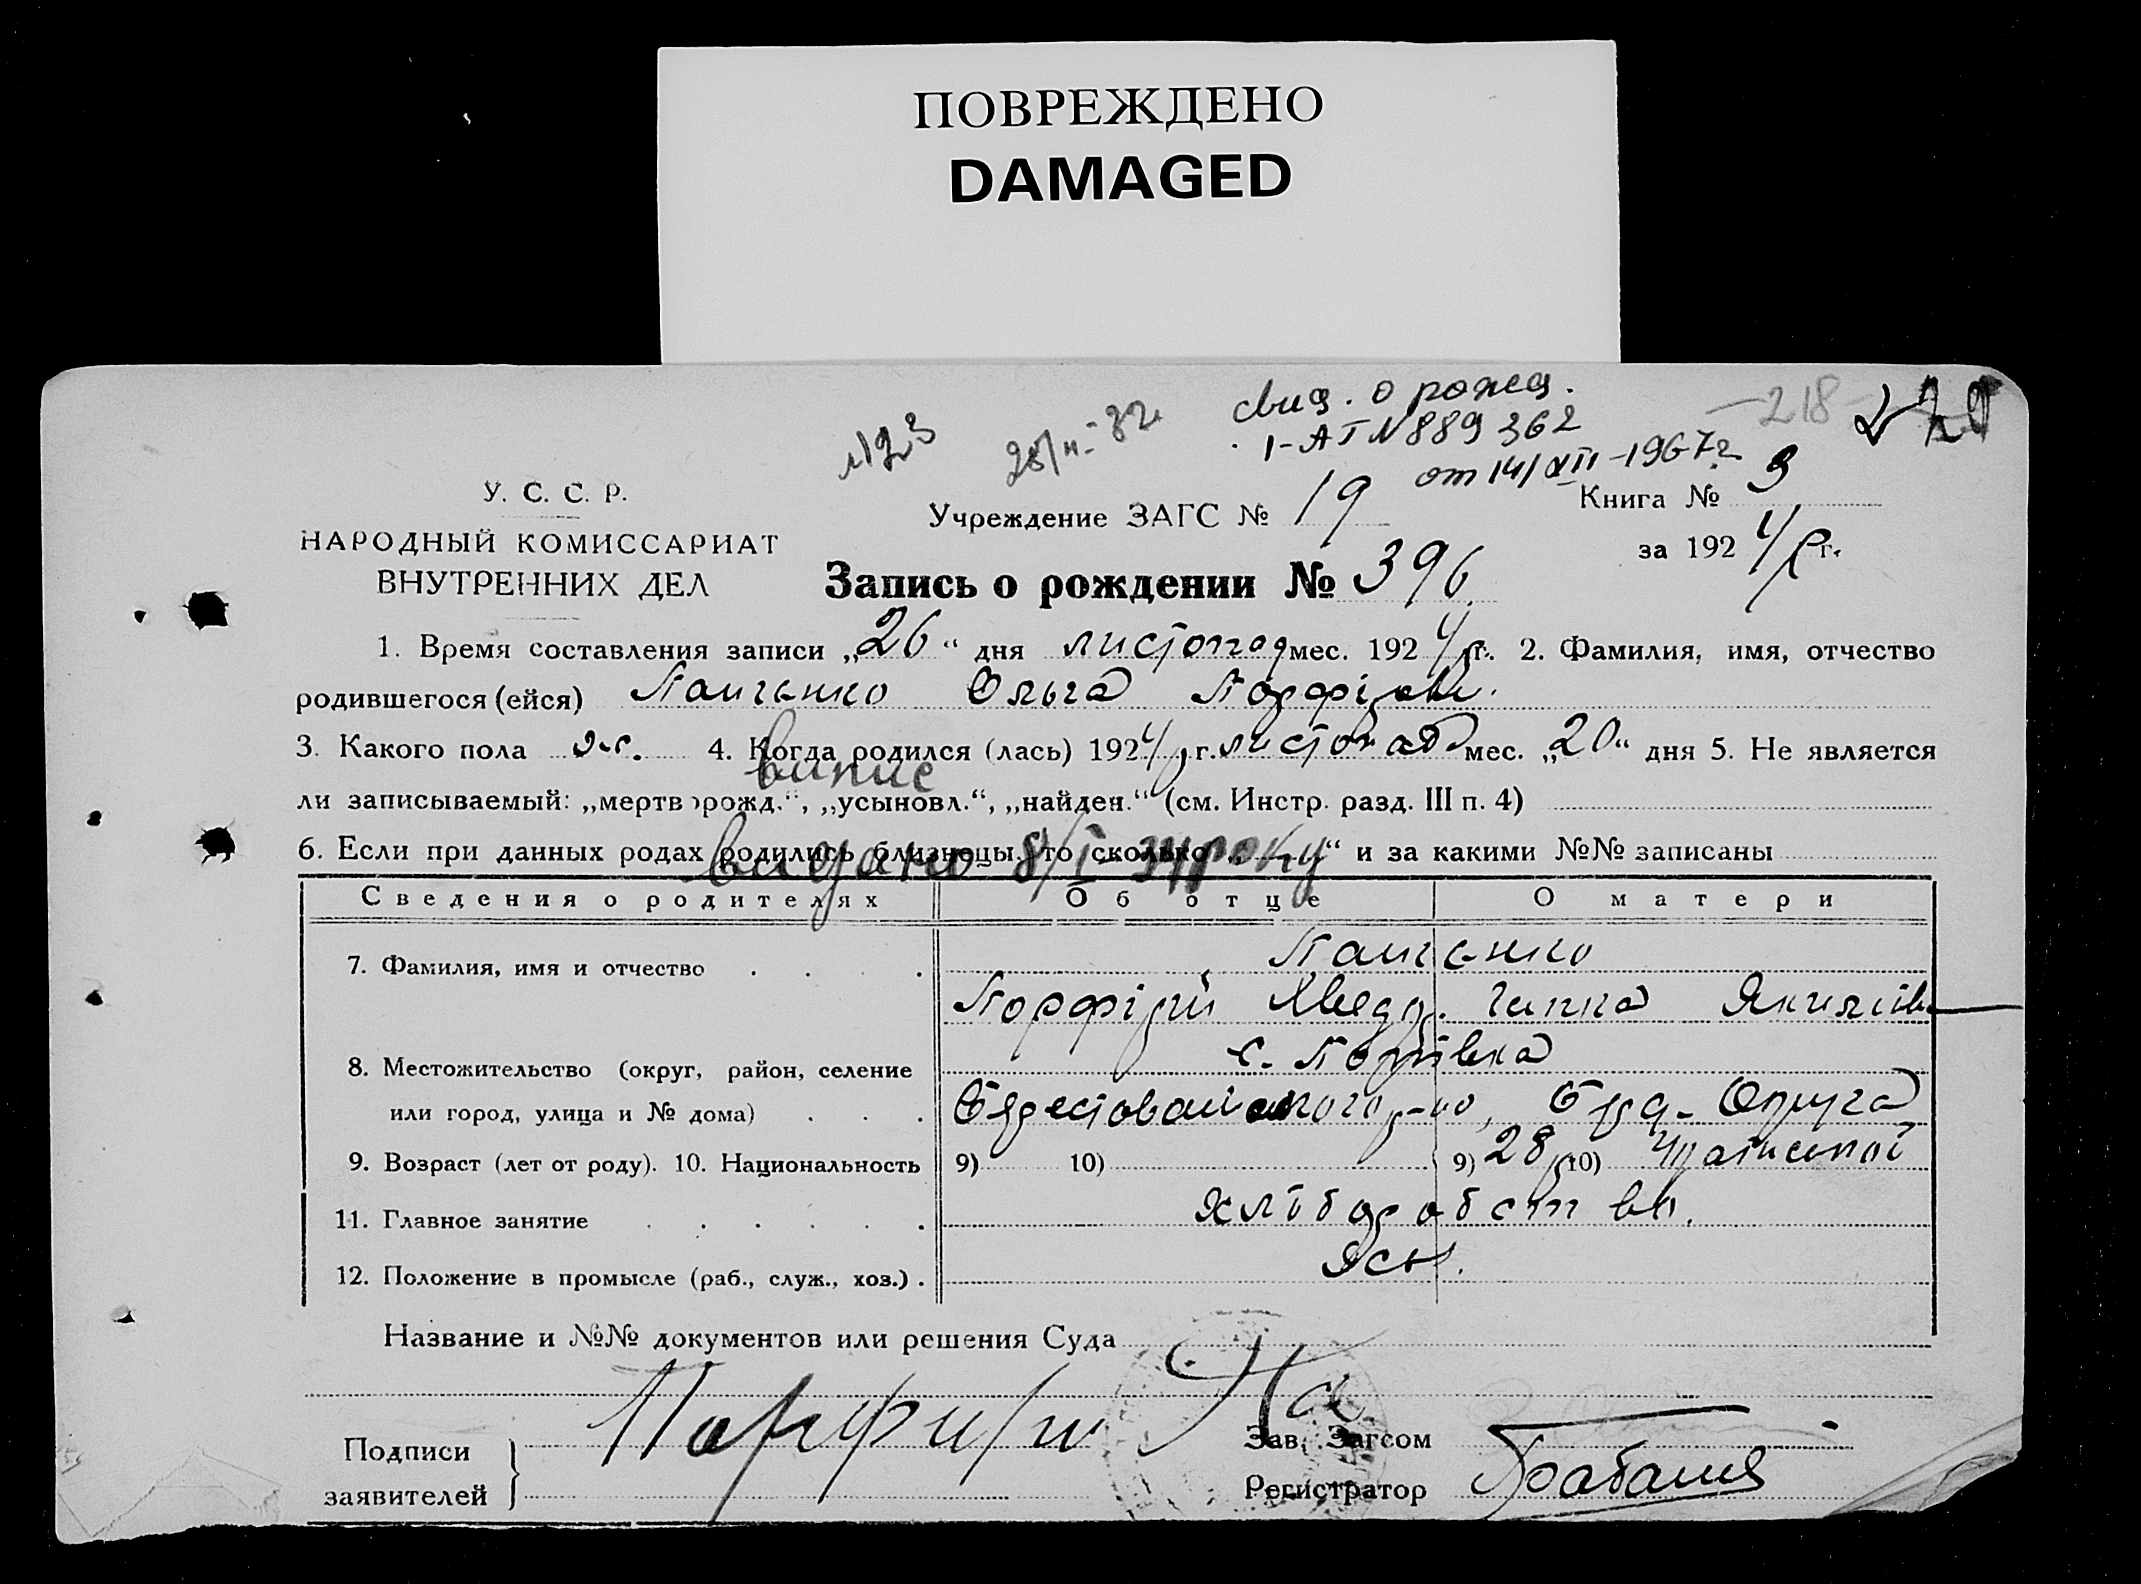 ПОВРЕЖДЕНО
DAMAGED
-218-
свид. о рожд.
№123
I-АТ N 889 362
от 14/XII-1967г.
У. С. С. Р.
НАРОДНЫЙ КОМИССАРИАТ
ВНУТРЕННИХ ДЕЛ
Учреждение ЗАГС № 19
Книга № 3
за 1924 г.
Запись о рождении № 396
1. Время составления записи „26“ дня листопад мес. 1924 г. 2. Фамилия, имя, отчество
родившегося (ейся) Панченко Ольга Порфірів.
3. Какого пола ж. 4. Когда родился (лась) 1924 г. листопад мес. „20“ дня 5. Не является
випис
ли записываемый: „мертворожд.“, „усыновл.“, „найден.“ (см. Инстр. разд. III п. 4)
6. Если при данных родах родились близнецы, то сколько „ “ и за какими №№ записаны
видано 8/I 34 року
Сведения о родителях Об отце О матери
7. Фамилия, имя и отчество . . . . Панченко
Порфірій Хведр. Ганна Якимів
8. Местожительство (округ, район, селение с.
или город, улица и № дома) . . . р-ну, Округа
9. Возраст (лет от роду). 10. Национальность 9) 10) 9) 28 р. 10) Української
11. Главное занятие . . . . . . хліборобств.
12. Положение в промысле (раб., служ., хоз.) .
Название и №№ документов или решения Суда
Подписи
заявителей
Порфири
Зав. Загсом
Регистратор